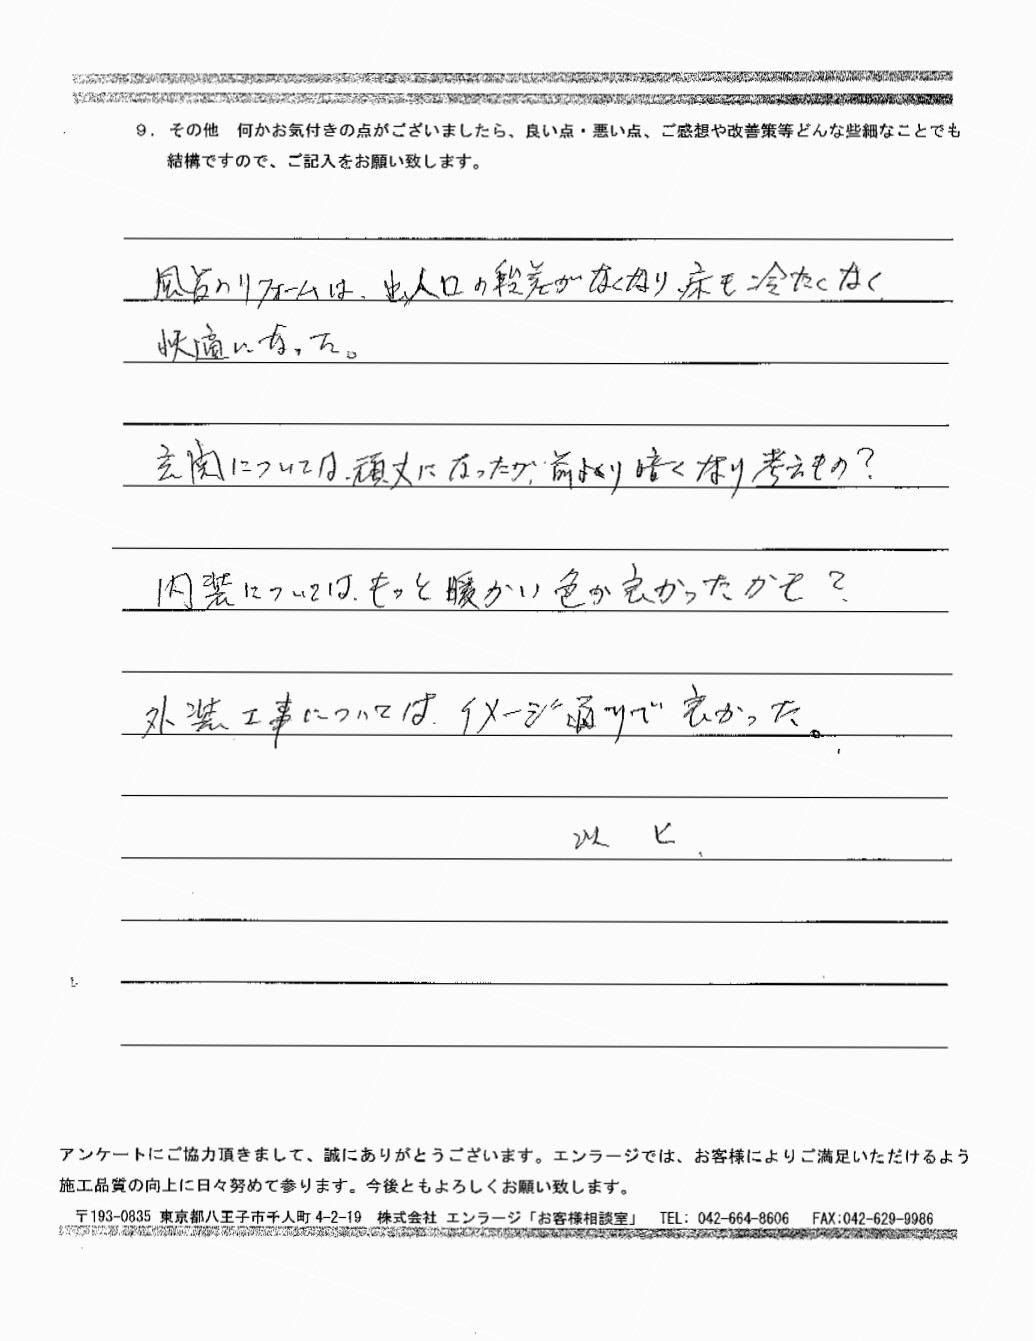 9. その他　何かお気付きの点がございましたら、良い点・悪い点、ご感想や改善策等どんな些細なことでも
結構ですので、ご記入をお願い致します。
風呂のリフォームは、出入口の段差がなくなり、床も冷たくなく
快適になった。
玄関については、頑丈になったが、前より暗くなり考えもの？
内装については、もっと暖かい色が良かったかも？
外装工事については、イメージ通りで良かった。
以上
アンケートにご協力頂きまして、誠にありがとうございます。エンラージでは、お客様によりご満足いただけるよう
施工品質の向上に日々努めて参ります。今後ともよろしくお願い致します。
〒193-0835 東京都八王子市千人町 4-2-19　株式会社 エンラージ「お客様相談室」　TEL: 042-664-8606　FAX:042-629-9986